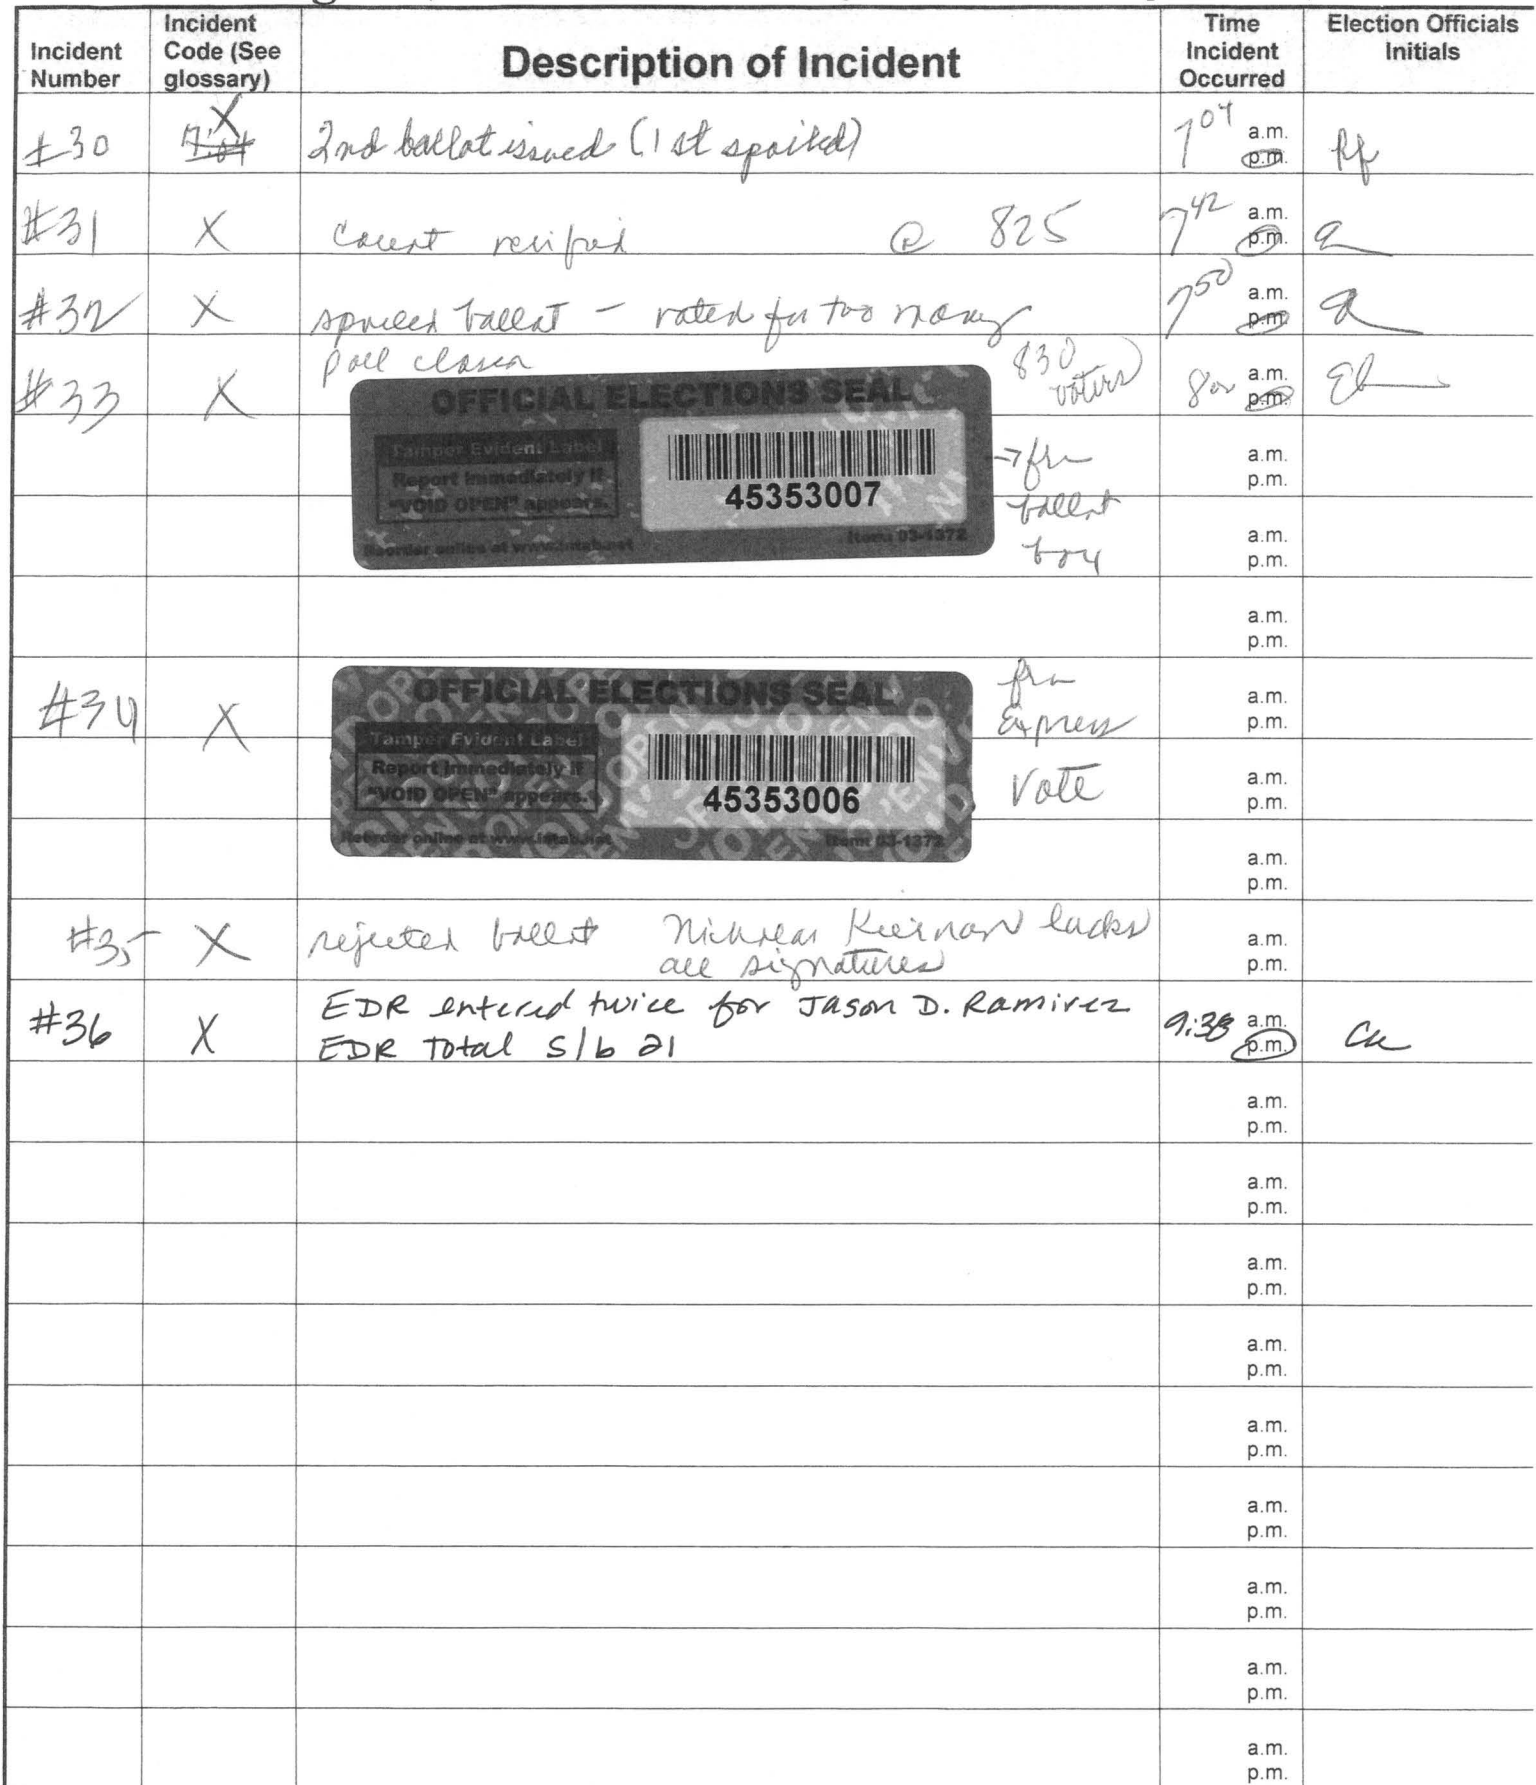 Incident Number
Incident Code (See glossary)
Description of Incident
Time Incident Occurred
Election Officials Initials
#30 X 7:04 2nd ballot issued (1st spoiled) 7 04 a.m. p.m. Rf
#31 X count verified @ 825 7 42 a.m. p.m.
#32 X spoiled ballot - voted for too many 7 50 a.m. p.m.
poll closed 830 voters
#33 X 8 00 a.m. p.m.
OFFICIAL ELECTIONS SEAL
Tamper Evident Label
Report Immediately if
"VOID OPEN" appears.
45353007
Reorder online at www.intab.net Item# 03-1372
→ from
ballot
box
a.m.
p.m.
a.m.
p.m.
a.m.
p.m.
#34 X
OFFICIAL ELECTIONS SEAL
Tamper Evident Label
Report Immediately if
"VOID OPEN" appears.
45353006
Reorder online at www.intab.net Item# 03-1372
from
Express
Vote
a.m.
p.m.
a.m.
p.m.
a.m.
p.m.
#35 X rejected ballot Kiernan lacks
all signatures
a.m.
p.m.
#36 X EDR entered twice for Jason D. Ramirez
EDR Total s/b 21
9:38 a.m. p.m.
a.m.
p.m.
a.m.
p.m.
a.m.
p.m.
a.m.
p.m.
a.m.
p.m.
a.m.
p.m.
a.m.
p.m.
a.m.
p.m.
a.m.
p.m.